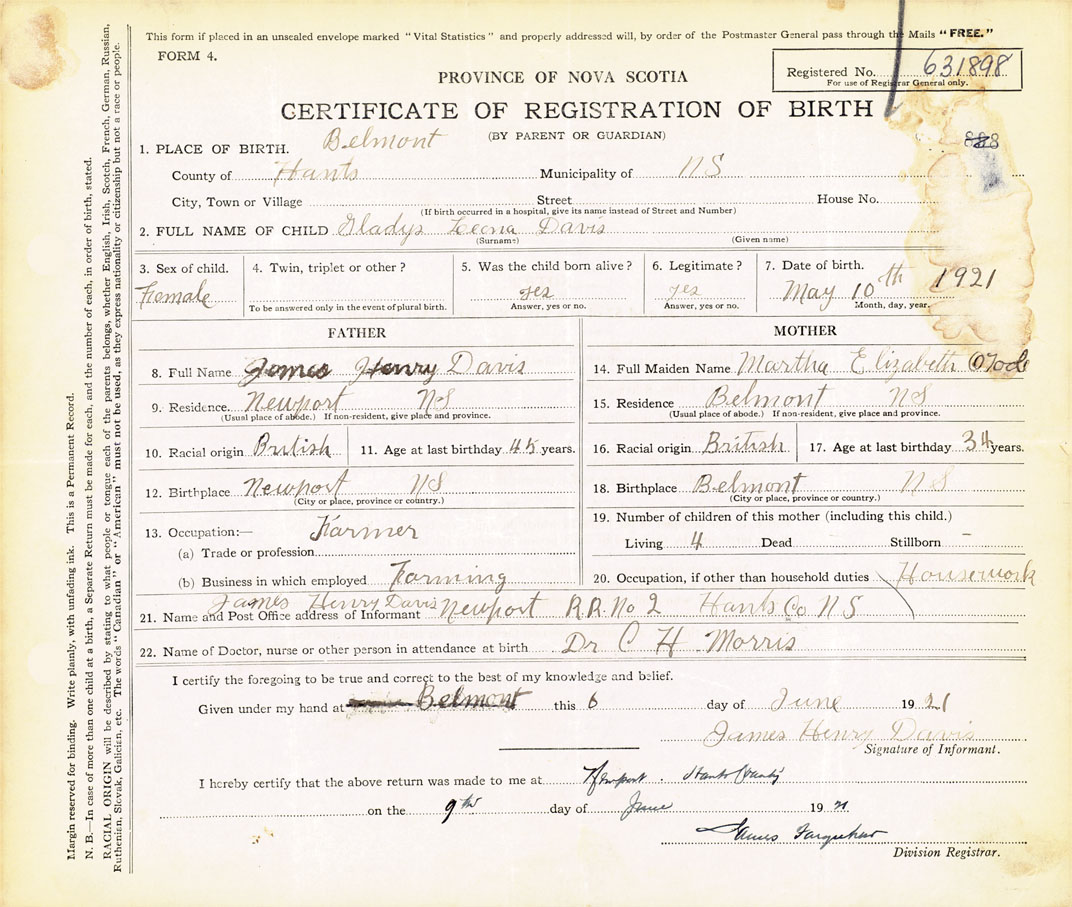 This form if placed in an unsealed envelope marked "Vital Statistics" and properly addressed will, by order of the Postmaster General pass through the Mails "FREE."
FORM 4.
Registered No. 631898
For use of Registrar General only.
PROVINCE OF NOVA SCOTIA
CERTIFICATE OF REGISTRATION OF BIRTH
(BY PARENT OR GUARDIAN)
1. PLACE OF BIRTH. Belmont
County of Hants Municipality of NS
City, Town or Village Street House No.
(If birth occurred in a hospital, give its name instead of Street and Number)
2. FULL NAME OF CHILD Gladys Leona Davis
(Surname) (Given name)
3. Sex of child. Female
4. Twin, triplet or other?
To be answered only in the event of plural birth.
5. Was the child born alive? yes
Answer, yes or no.
6. Legitimate? yes
Answer, yes or no.
7. Date of birth. May 10th 1921
Month, day, year.
FATHER
8. Full Name James Henry Davis
9. Residence. Newport NS
(Usual place of abode.) If non-resident, give place and province.
10. Racial origin British 11. Age at last birthday 45 years.
12. Birthplace Newport NS
(City or place, province or country.)
13. Occupation:— Farmer
(a) Trade or profession
(b) Business in which employed Farming
MOTHER
14. Full Maiden Name Martha Elizabeth
15. Residence Belmont NS
(Usual place of abode.) If non-resident, give place and province.
16. Racial origin British 17. Age at last birthday 34 years.
18. Birthplace Belmont NS
(City or place, province or country.)
19. Number of children of this mother (including this child.)
Living 4 Dead Stillborn –
20. Occupation, if other than household duties Housework
James Henry Davis
21. Name and Post Office address of Informant Newport R.R. No 2 Hants Co NS
22. Name of Doctor, nurse or other person in attendance at birth Dr C H Morris
I certify the foregoing to be true and correct to the best of my knowledge and belief.
Given under my hand at Belmont this 6 day of June 1921
James Henry Davis
Signature of Informant.
I hereby certify that the above return was made to me at Newport. Hants County
on the 9th day of June 1921
James Farquhar
Division Registrar.
Margin reserved for binding. Write plainly, with unfading ink. This is a Permanent Record.
N. B.—In case of more than one child at a birth, a Separate Return must be made for each, and the number of each, in order of birth, stated.
RACIAL ORIGIN will be described by stating to what people or tongue each of the parents belongs, whether English, Irish, Scotch, French, German, Russian,
Ruthenian, Slovak, Galician, etc. The words "Canadian" or "American" must not be used, as they express nationality or citizenship but not a race or people.